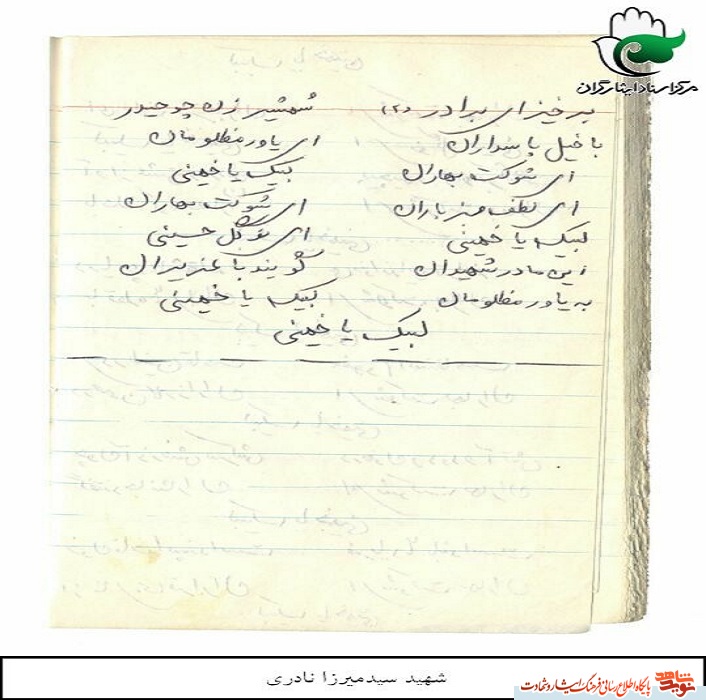 مرکز اسناد ایثارگران
برخیز ای برادر (۲) شمشیر زن چو حیدر
با خیل پاسداران ای یاور مظلومان
ای شوکت بهاران لبیک یا خمینی
ای لطف هر باران ای شوکت بهاران
لبیک یا خمینی ای نوگل حسینی
این مادر شهیدان گویند با عزیزان
به یاور مظلومان لبیک یا خمینی
لبیک یا خمینی
شهید سیدمیرزا نادری
نوید شاهد پایگاه اطلاع رسانی فرهنگ ایثار و شهادت